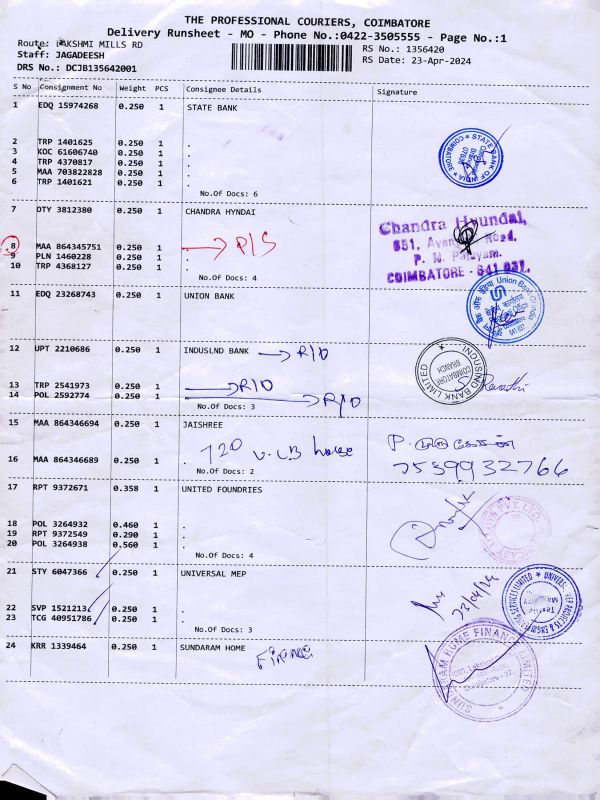 THE PROFESSIONAL COURIERS, COIMBATORE
Delivery Runsheet - MO - Phone No.:0422-3505555 - Page No.:1
Route: LAKSHMI MILLS RD
RS No.: 1356420
Staff: JAGADEESH
RS Date: 23-Apr-2024
DRS No.: DCJB135642001
S No Consignment No Weight PCS Consignee Details Signature
1 EDQ 15974268 0.250 1 STATE BANK
2 TRP 1401625 0.250 1 .
3 KOC 61606740 0.250 1 .
4 TRP 4370817 0.250 1 .
5 MAA 703822828 0.250 1 .
6 TRP 1401621 0.250 1 .
No.Of Docs: 6
STATE BANK OF INDIA
COIMBATORE
7 DTY 3812380 0.250 1 CHANDRA HYNDAI
8 MAA 864345751 0.250 1 P/S
9 PLN 1460228 0.250 1 .
10 TRP 4368127 0.250 1 .
No.Of Docs: 4
Chandra Hyundai,
651, Avanashi Road,
P. N. Palayam,
COIMBATORE - 641 037.
11 EDQ 23268743 0.250 1 UNION BANK
Union Bank of India
12 UPT 2210686 0.250 1 INDUSLND BANK R/D
13 TRP 2541973 0.250 1 R/D
14 POL 2592774 0.250 1 R/D
No.Of Docs: 3
INDUSIND BANK LIMITED
COIMBATORE
BRANCH
15 MAA 864346694 0.250 1 JAISHREE
16 MAA 864346689 0.250 1 .
No.Of Docs: 2
7539932766
17 RPT 9372671 0.358 1 UNITED FOUNDRIES
18 POL 3264932 0.460 1 .
19 RPT 9372549 0.290 1 .
20 POL 3264938 0.560 1 .
No.Of Docs: 4
21 STY 6047366 0.250 1 UNIVERSAL MEP
22 SVP 1521213 0.250 1 .
23 TCG 40951786 0.250 1 .
No.Of Docs: 3
23/04/24
UNIVERSAL MEP PROJECTS & ENGINEERING SERVICES LIMITED
24 KRR 1339464 0.250 1 SUNDARAM HOME
Finance
SUNDARAM HOME FINANCE LIMITED